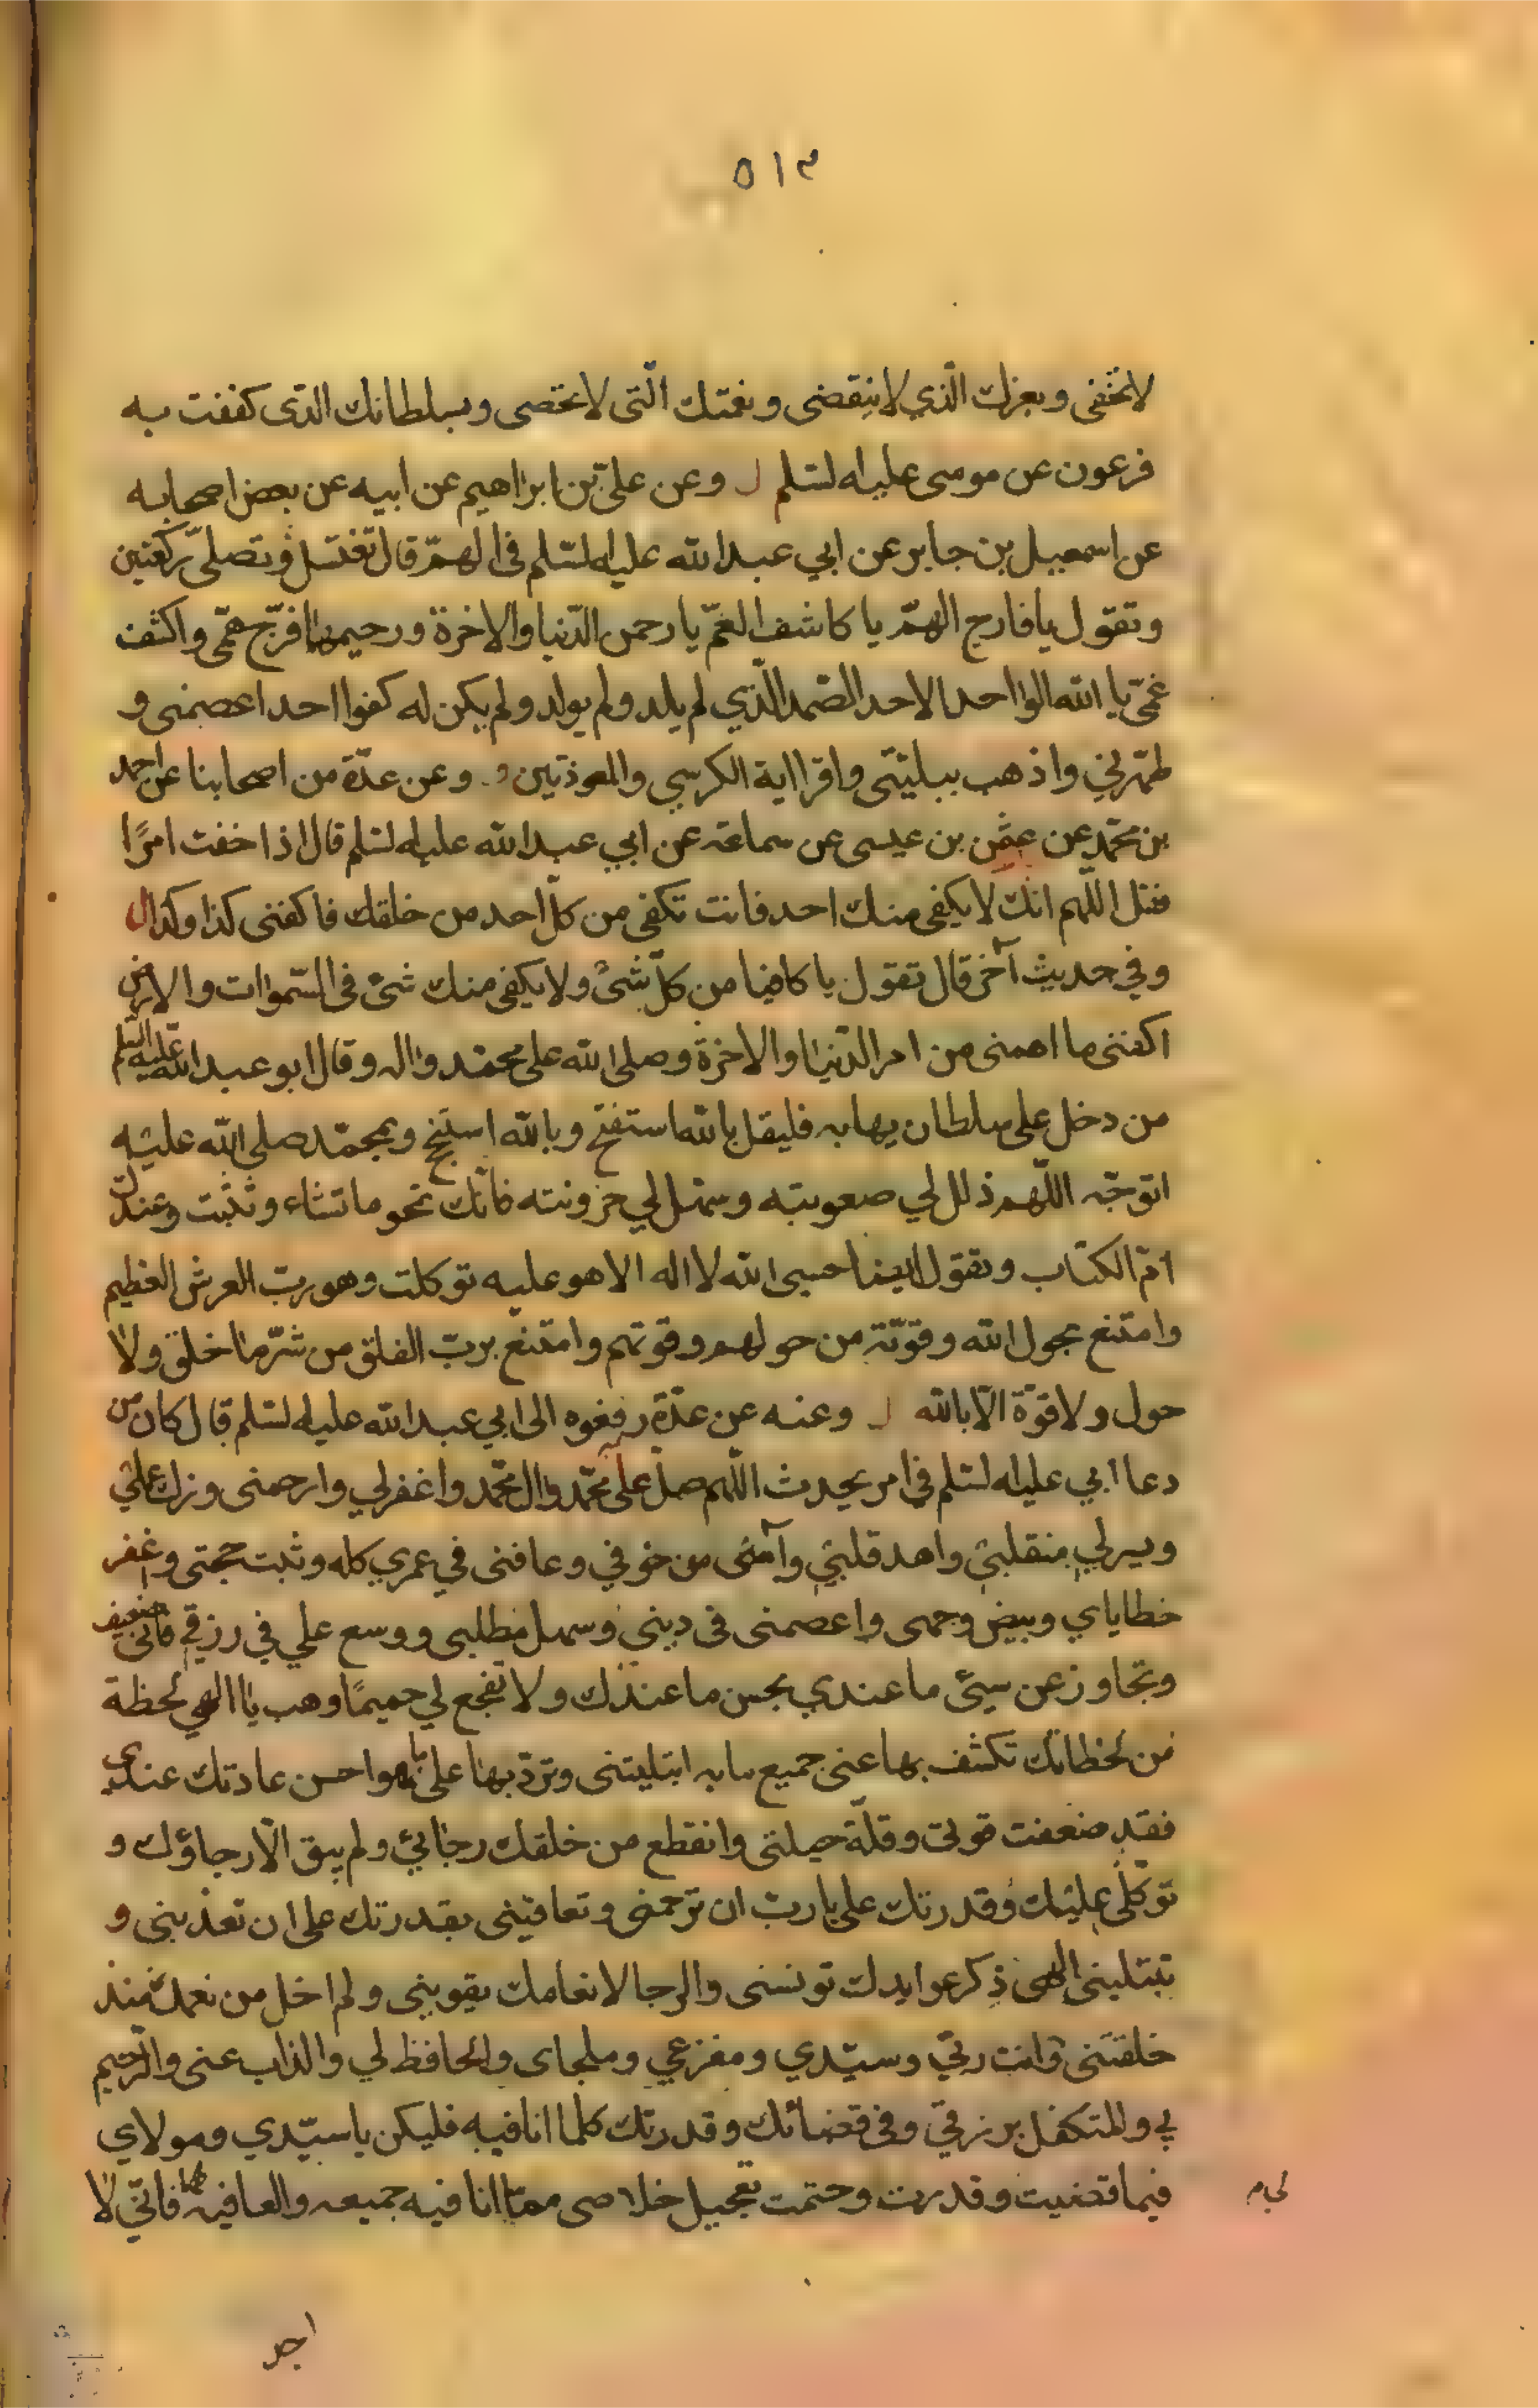 ٥١٣
لا تخفى وبعزك الّذي لا ينقضى ونعمتك الّتى لا تحصى وبسلطانك الذى كففت به
فرعون عن موسى عليه لسّلم وعن علىّ بن ابراهيم عن ابيه عن بعض اصحابه
عن اسمعيل بن جابر عن ابي عبد الله عليه لسّلم فى الهمّ قال تغتسل وتصلّى ركعتين
وتقول يا فارج الهمّ يا كاشف الغمّ يا رحمن الدّنيا والاخرة ورحيمهما فرّج همّى واكشف
غمّى يا الله الواحد الاحد الصّمد الّذي لم يلد ولم يولد ولم يكن له كفوا احد اعصمنى و
طهّرني واذهب ببليتى واقرا اية الكرسي والمعوذتين وعن عدّة من اصحابنا عن احمد
بن محمّد عن عثمن بن عيسى عن سماعة عن ابي عبد الله عليه لسّلم قال اذا خفت امرًا
فقل اللّهم انّك لا يكفى منك احد فانت تكفى من كلّ احد من خلقك فاكفنى كذا وكذا
وفي حديث آخر قال تقول يا كافيا من كلّ شئ ولا يكفى منك شئ فى السّموات والارض
اكفنى ما اهمنى من امر الدّنيا والاخرة وصلى الله على محمّد واله وقال ابو عبد الله عليه السّلم
من دخل على سلطان يهابه فليقل بالله استفتح وبالله استنجح وبمحمّد صلى الله عليه
اتوجّه اللّهم ذلل لي صعوبته وسهّل لي حزونته فانّك تمحو ما تشاء وتثبت وعندك
امّ الكتاب وتقول ايضا حسبى الله لا اله الا هو عليه توكلت وهو ربّ العرش العظيم
وامتنع بحول الله وقوّته من حولهم وقوتهم وامتنع بربّ الفلق من شرّ ما خلق ولا
حول ولا قوّة الّا بالله وعنه عن عدّة رفعوه الى ابي عبد الله عليه لسّلم قال كان من
دعا ابي عليه لسّلم في امر يحدث اللّهم صلّ على محمّد وال محمّد واغفر لي وارحمنى وزك علي
ويسر لي منقلبي واهد قلبي وآمنى من خوفي وعافنى في عمري كله وثبت حجتى واغفر
خطاياي وبيض وجهى واعصمنى فى ديني وسهل مطلبى ووسع علي في رزقي فانّى ضعيف
وتجاوز عن سيئ ما عندي بحسن ما عندك ولا تفجع لي حميمًا وهب يا الهي لحظة
من لحظاتك تكشف بها عنى جميع ما به ابتليتنى وتردّ بها على ما هو احسن عادتك عندي
فقد ضعفت قوتى وقلّة حيلتى وانقطع من خلقك رجائي ولم يبق الّا رجاؤك و
توكّلى عليك وقدرتك على يا ربّ ان ترحمنى وتعافينى بقدرتك على ان تعذبنى و
تبتلينى الهى ذكر عوايدك تونسنى والرجا لانعامك يقويني ولم اخل من نعمك منذ
خلقتنى وانت ربّي وسيّدي ومفزعي وملجاى والحافظ لي والذاب عنى والرّحيم
بي والمتكفل برزقي وفى قضائك وقدرتك كلما انا فيه فليكن يا سيّدي ومولاي
فيما قضيت وقدرت وحتمت تعجيل خلاصى ممّا انا فيه جميعه والعافية فانّي لا